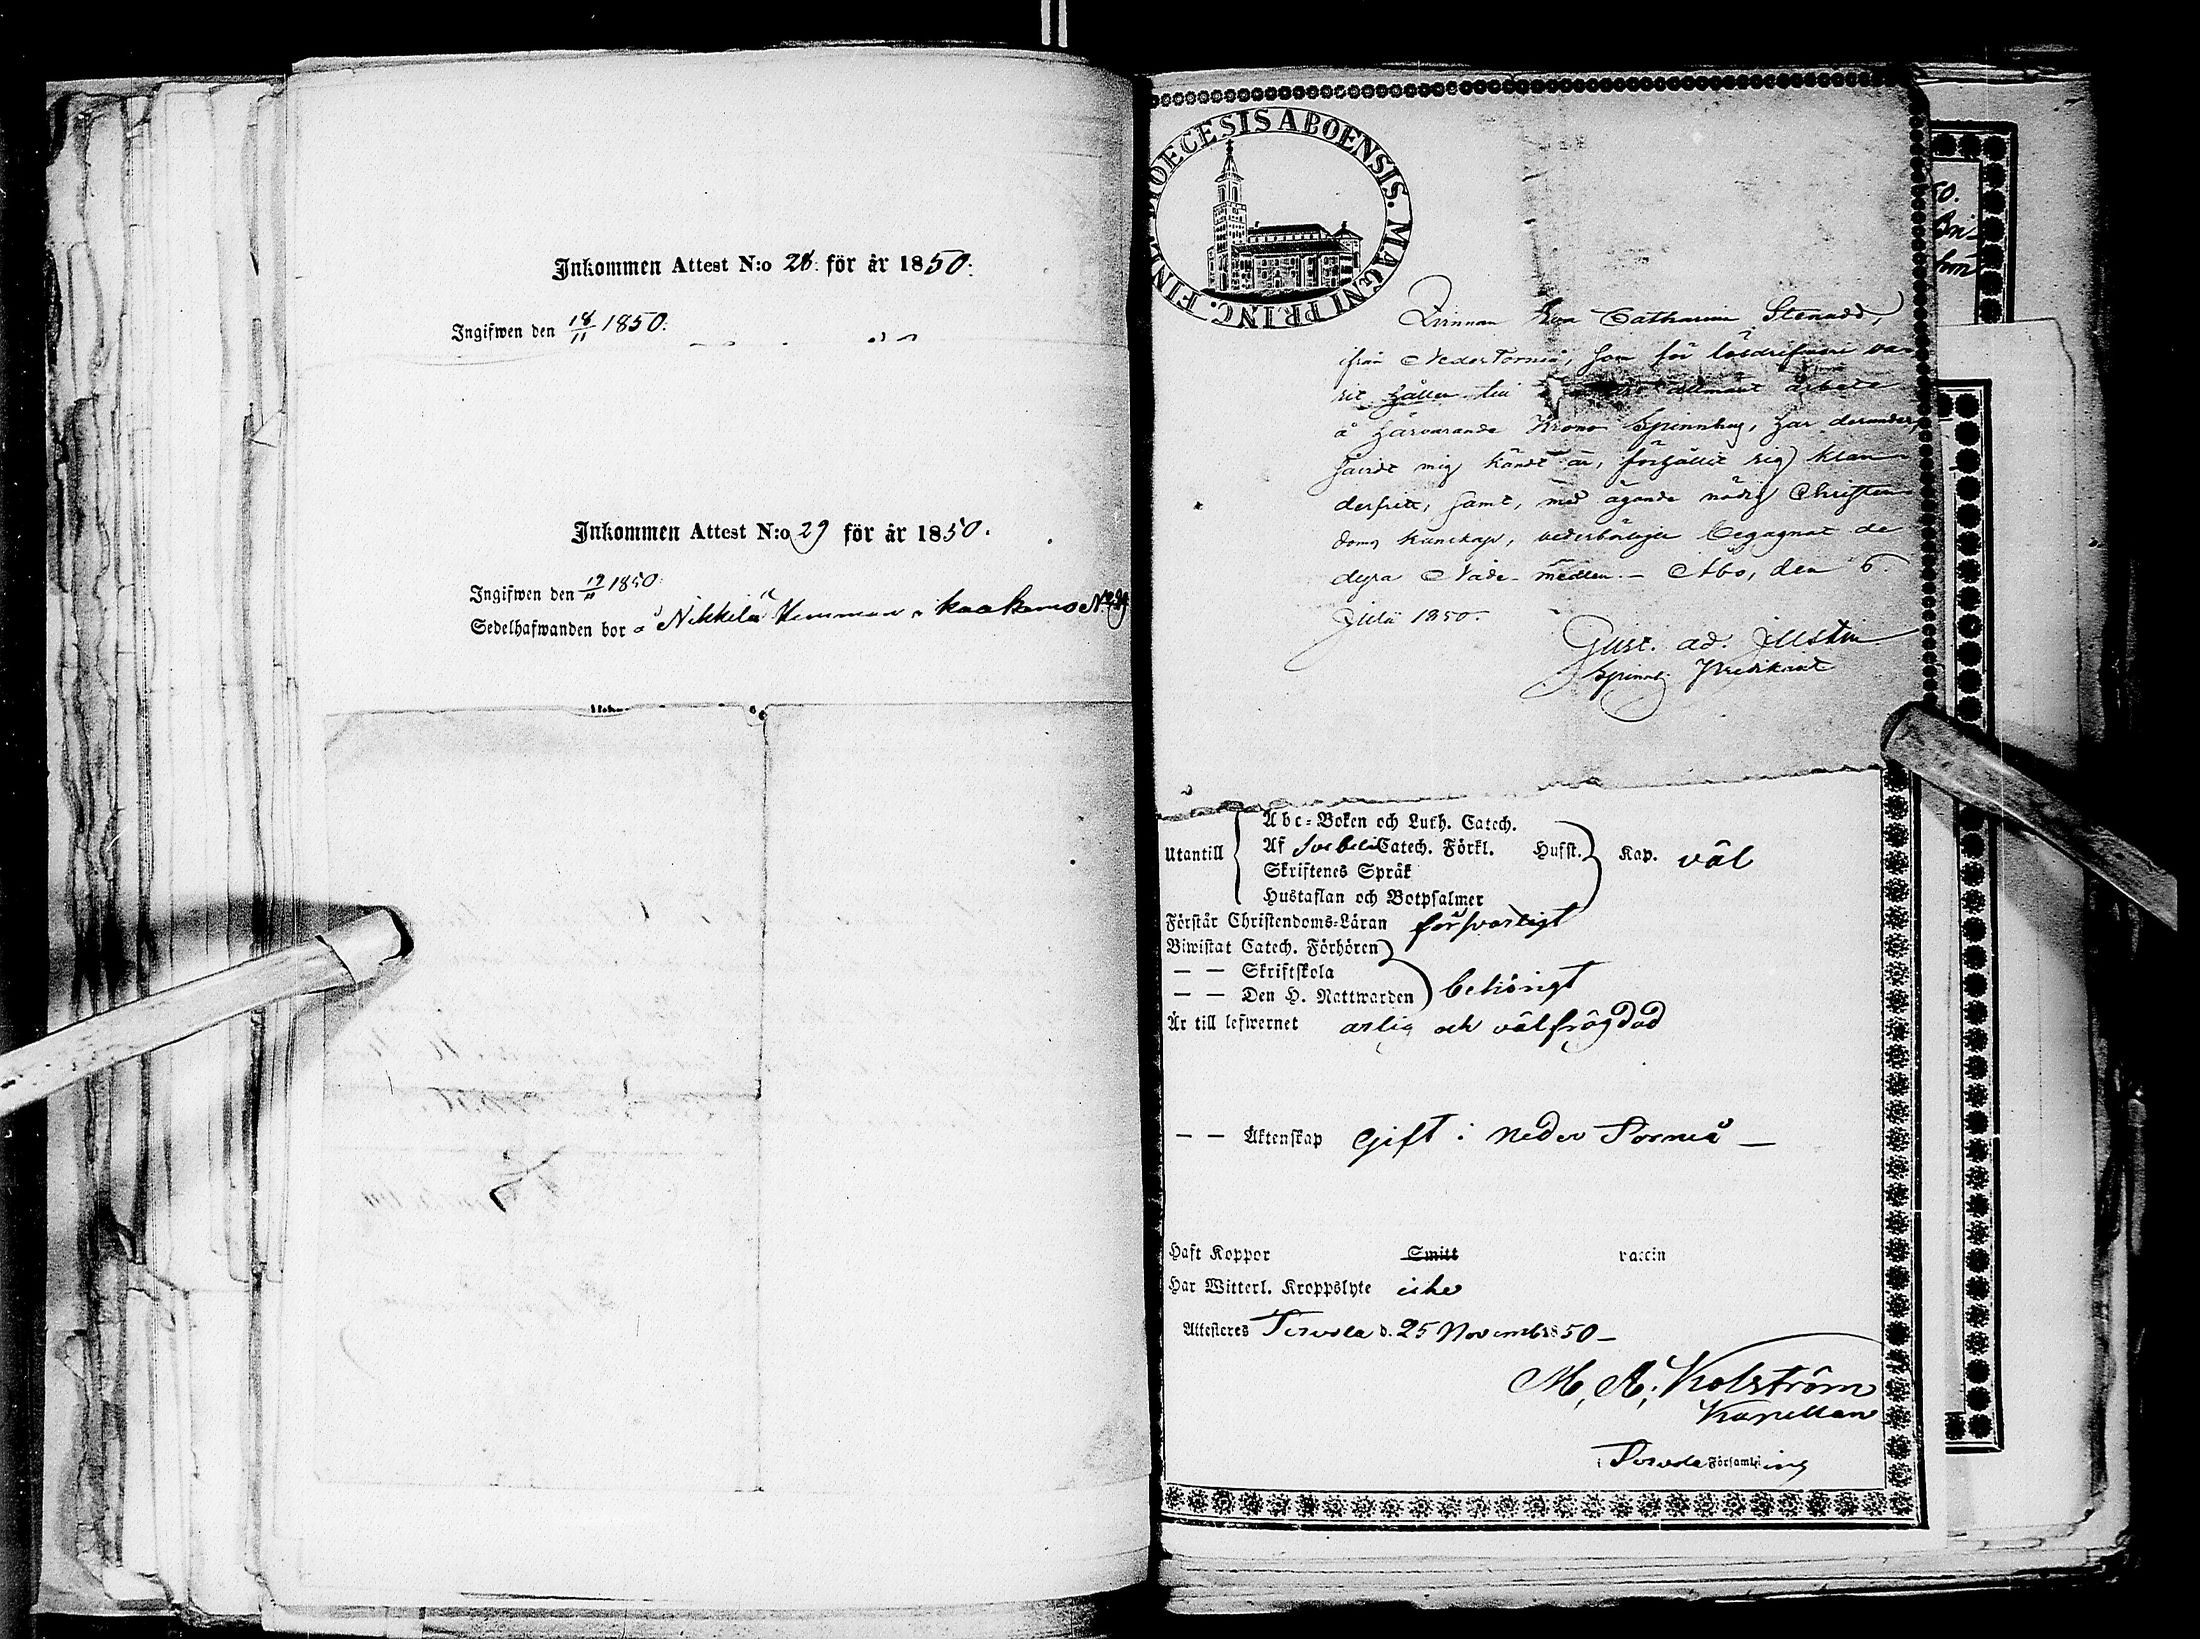 Inkommen Attest N:o 28. för år 1850.
Ingifwen den 18/11 1850.
Inkommen Attest N:o 29 för år 1850.
Ingifwen den 19/11 1850.
Sedelhafwanden bor å Nikkilä Hemman i Kaakamo No 29
DIOECESIS ABOENSIS. MAGNI PRINC. FINL.
Qvinnan Eva Catharina Stenudd,
ifrån Neder Torneå, som för lösdrifveri va-
rit hållen till allmänt arbete
å härvarande Krono Spinnhus, har derunder,
såvidt mig kändt är, förhållit sig klan-
derfritt, samt, med ägande nödig Christen-
doms kunskap, vederbörligen begagnat de
dyra Nåde-medlen. – Åbo, den 6.
Julii 1850.
Gust. Ad.
Spinnh. Predikant
50.
Utantill
Abc-Boken och Luth. Catech.
Af Svebelii Catech. Förkl. Husst. Kap. väl
Skriftenes Språk
Hustaflan och Botpsalmer
Förstår Christendoms-Läran försvarligt
Biwistat Catech. Förhören
— — Skriftskola
— — Den H. Nattwarden behörigt
Är till lefwernet ärlig och välfrägdad
— — Äktenskap Gift i Neder Torneå —
Haft Koppor Smitt vaccin
Har Witterl. Kroppslyte icke
Attesteres Tervola d. 25 Novemb 1850 —
M. A. Kolström
Kapellan
i Tervola Församling